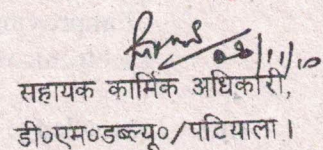 सहायक कार्मिक अधिकारी,
डी०एम०डब्ल्यू०/पटियाला।